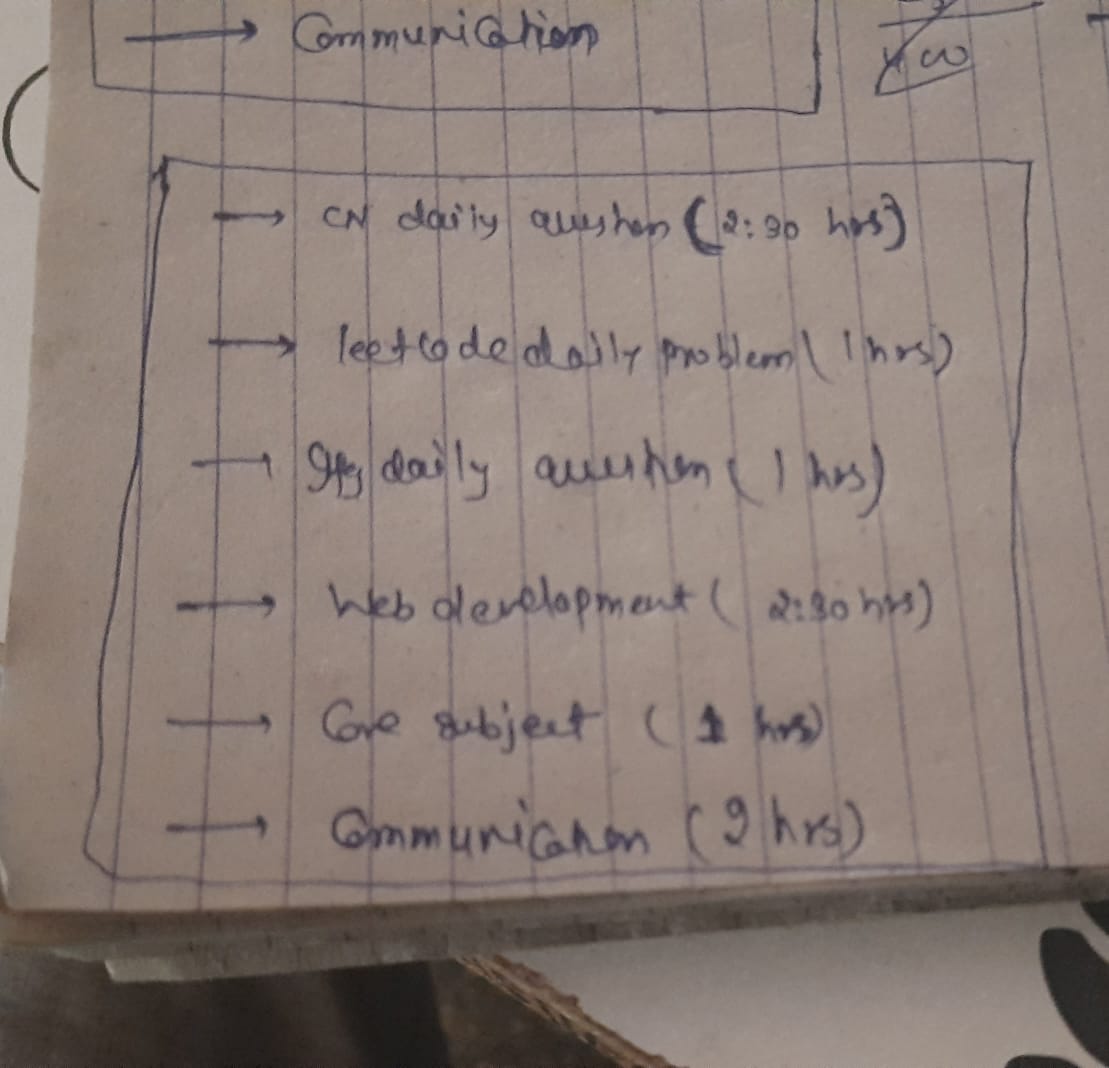 → Communication
→ CN daily question (2:30 hrs)
→ leetcode daily problem (1 hrs)
→ gfg daily question (1 hrs)
→ Web development (2:30 hrs)
→ Core subject (1 hrs)
→ Communication (2 hrs)